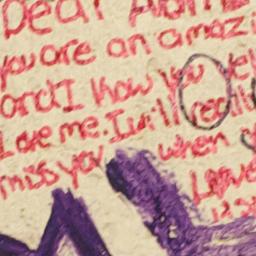 Dear
you are an amazi
and I know you
Love me. I will really
miss you when
Leave